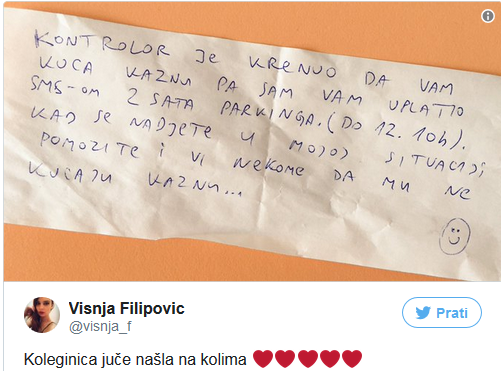 KONTROLOR JE KRENUO DA VAM
KUCA KAZNU PA SAM VAM UPLATIO
SMS-OM 2 SATA PARKINGA. (DO 12.10h).
KAD SE NADJETE U MOJOJ SITUACIJI
POMOZITE I VI NEKOME DA MU NE
KUCAJU KAZNU...
Visnja Filipovic
@visnja_f
Prati
Koleginica juče našla na kolima ❤❤❤❤❤